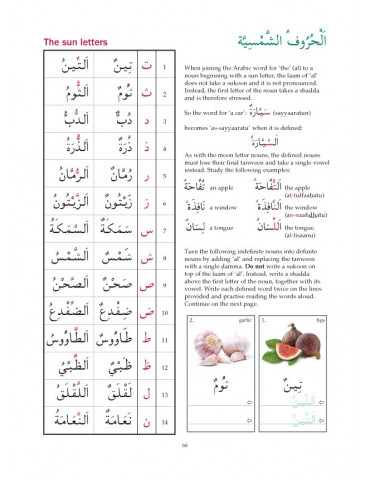 The sun letters
اَلْحُرُوفُ الشَّمْسِيَّة
اَلتِّينُ تِينٌ ت 1
اَلثُّومُ ثُومٌ ث 2
اَلدُّبُّ دُبٌّ د 3
اَلذُّرَةُ ذُرَةٌ ذ 4
اَلرُّمَّانُ رُمَّانٌ ر 5
اَلزَّيْتُونُ زَيْتُونٌ ز 6
اَلسَّمَكَةُ سَمَكَةٌ س 7
اَلشَّمْسُ شَمْسٌ ش 8
اَلصَّحْنُ صَحْنٌ ص 9
اَلضِّفْدِعُ ضِفْدِعٌ ض 10
اَلطَّاوُوسُ طَاوُوسٌ ط 11
اَلظَّبْيُ ظَبْيٌ ظ 12
اَللَّقْلَقُ لَقْلَقٌ ل 13
اَلنَّعَامَةُ نَعَامَةٌ ن 14
When joining the Arabic word for 'the' (al) to a
noun beginning with a sun letter, the laam of 'al'
does not take a sukoon and it is not pronounced.
Instead, the first letter of the noun takes a shadda
and is therefore stressed.
So the word for 'a car': سَيَّارَةٌ (sayyaaratun)
becomes 'as-sayyaaratu' when it is defined:
اَلسَّيَّارَةُ
As with the moon letter nouns, the defined nouns
must lose their final tanween and take a single vowel
instead. Study the following examples:
تُفَّاحَةٌ an apple اَلتُّفَّاحَةُ the apple
(at-tuffaahatu)
نَافِذَةٌ a window اَلنَّافِذَةُ the window
(an-naafidhatu)
لِسَانٌ a tongue اَللِّسَانُ the tongue
(al-lisaanu)
Turn the following indefinite nouns into definite
nouns by adding 'al' and replacing the tanween
with a single damma. Do not write a sukoon on
top of the laam of 'al'. Instead, write a shadda
above the first letter of the noun, together with its
vowel. Write each defined word twice on the lines
provided and practise reading the words aloud.
Continue on the next page.
2. garlic 1. figs
ثُومٌ تِينٌ
اَلتِّينُ
اَلتِّينُ
66